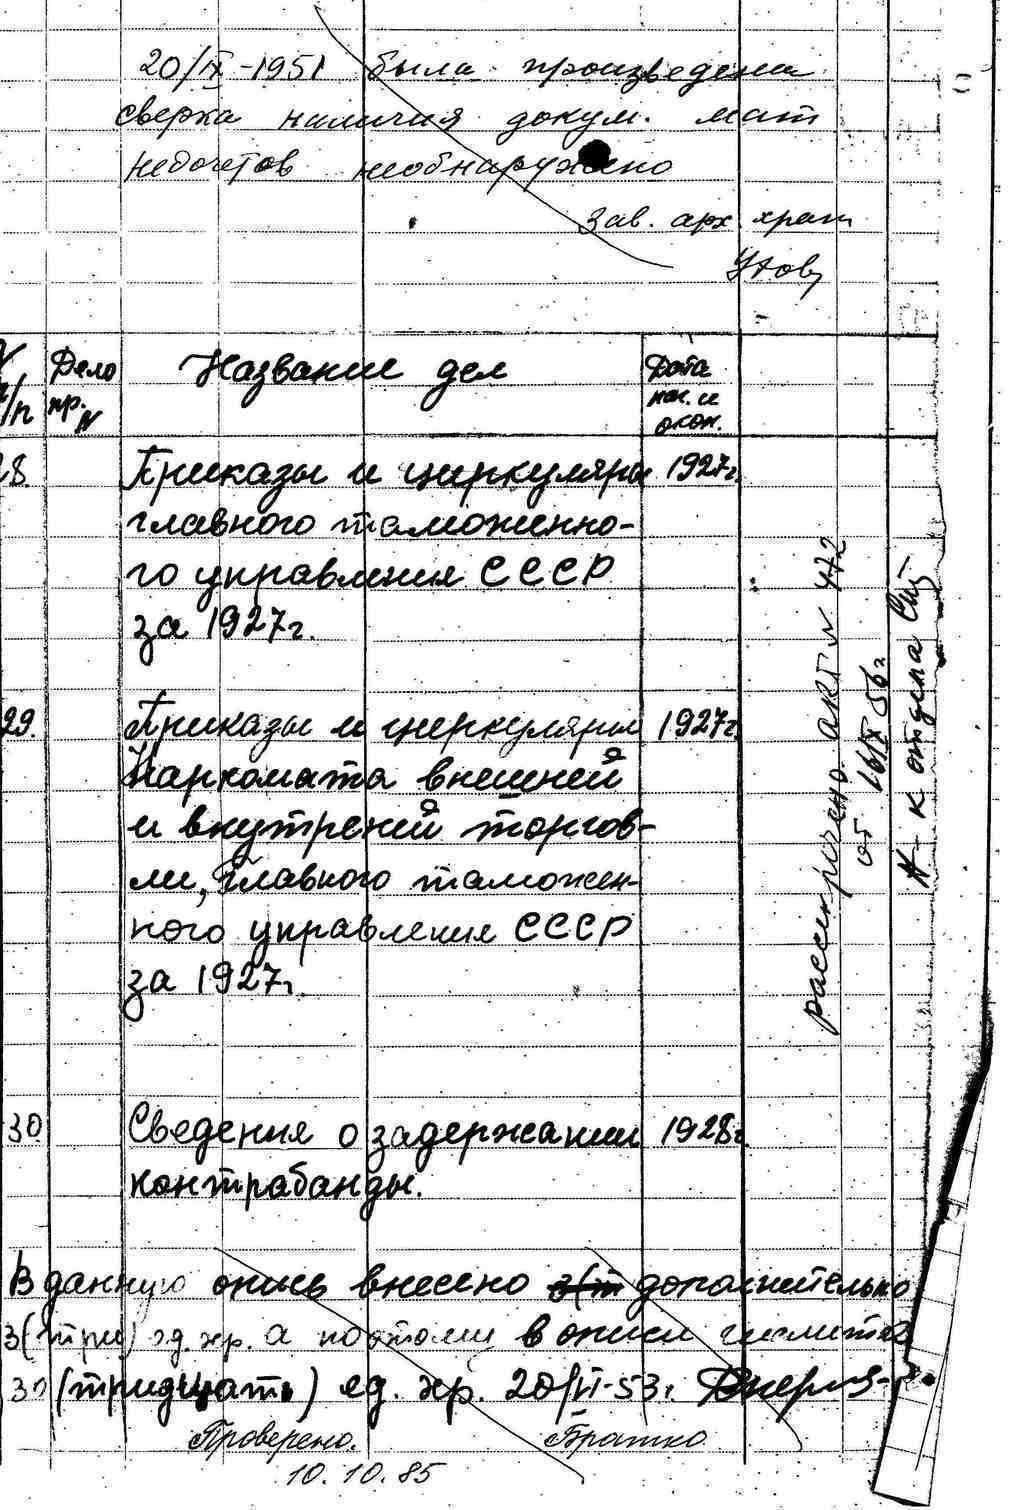 20/IX-1951 была произведена
сверка наличия докум. мат
недочетов необнаружено
Зав. арх. хран
N п/п Дело хр. N Название дел Дата нач. и окон.
28. Приказы и циркуляры 1927г.
главного таможенно-
го управления СССР
за 1927г.
29. Приказы и циркуляры 1927г.
Наркомата внешней
и внутреней торгов-
ли, Главного таможен-
ного управления СССР
за 1927г.
30 Сведения о задержании 1928г.
контрабанды.
В данную опись внесено 3(т дополнительно
3(три) ед. хр. а поэтому в описи числится
30 (тридцать) ед. хр. 20/VI-53г.
Проверено. Братко
10.10.85
рассекречено акт N 472
от 16/IX 56г
Н-к отдела